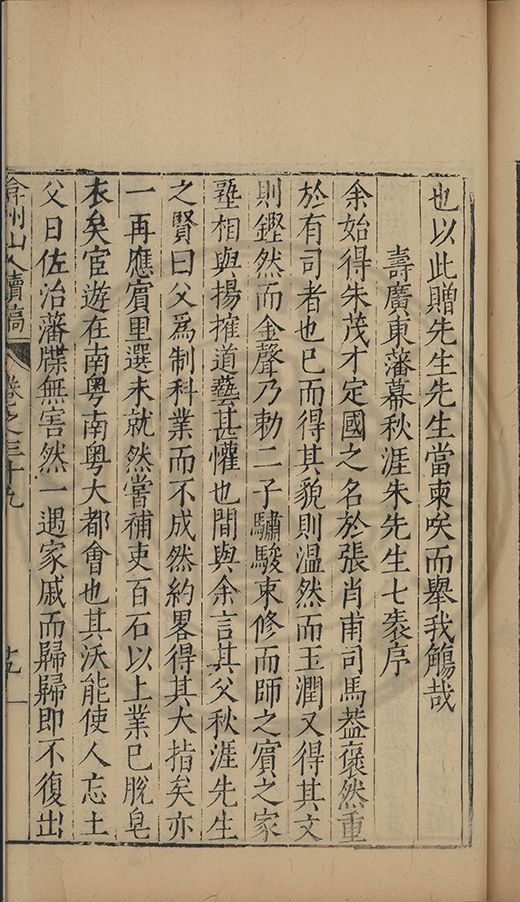 也以此贈先生先生當柬唉而舉我觴哉
壽廣東藩幕秋涯朱先生七袠序
余始得朱茂才定國之名於張肖甫司馬葢褒然重
於有司者也已而得其貌則溫然而玉潤又得其文
則鏗然而金聲乃勅二子驌駿束修而師之賓之家
塾相與揚搉道藝甚懽也間與余言其父秋涯先生
之賢曰父爲制科業而不成然約畧得其大指矣亦
一再應賓里選未就然嘗補吏百石以上業已脫皂
衣矣宦遊在南粤南粤大都會也其沃能使人忘土
父日佐治藩牒無害然一遇家戚而歸歸即不復出
弇州山人續稿
卷之三十九